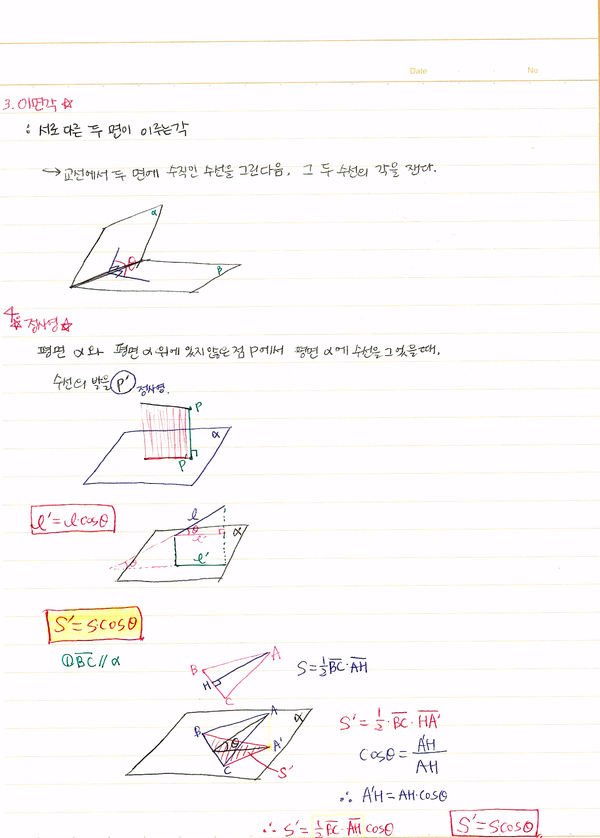 Date No
3. 이면각 ☆
: 서로 다른 두 면이 이루는각
→ 교선에서 두 면에 수직인 수선을 그린다음, 그 두 수선의 각을 잰다.
α
θ
β
4. 정사영 ☆
평면 α와 평면 α위에 있지않은 점 P에서 평면 α에 수선을 그었을때,
수선의 발을 P' 정사영.
P
α
P'
l' = l·cosθ
l
θ
l'
α
θ
l'
S' = scosθ
① BC // α
B
A
H
C
S = 1/2 BC · AH
A
α
B
θ
A'
C
S'
S' = 1/2 · BC · HA'
cosθ = A'H / AH
∴ A'H = AH·cosθ
∴ S' = 1/2 BC · AH cosθ
S' = Scosθ